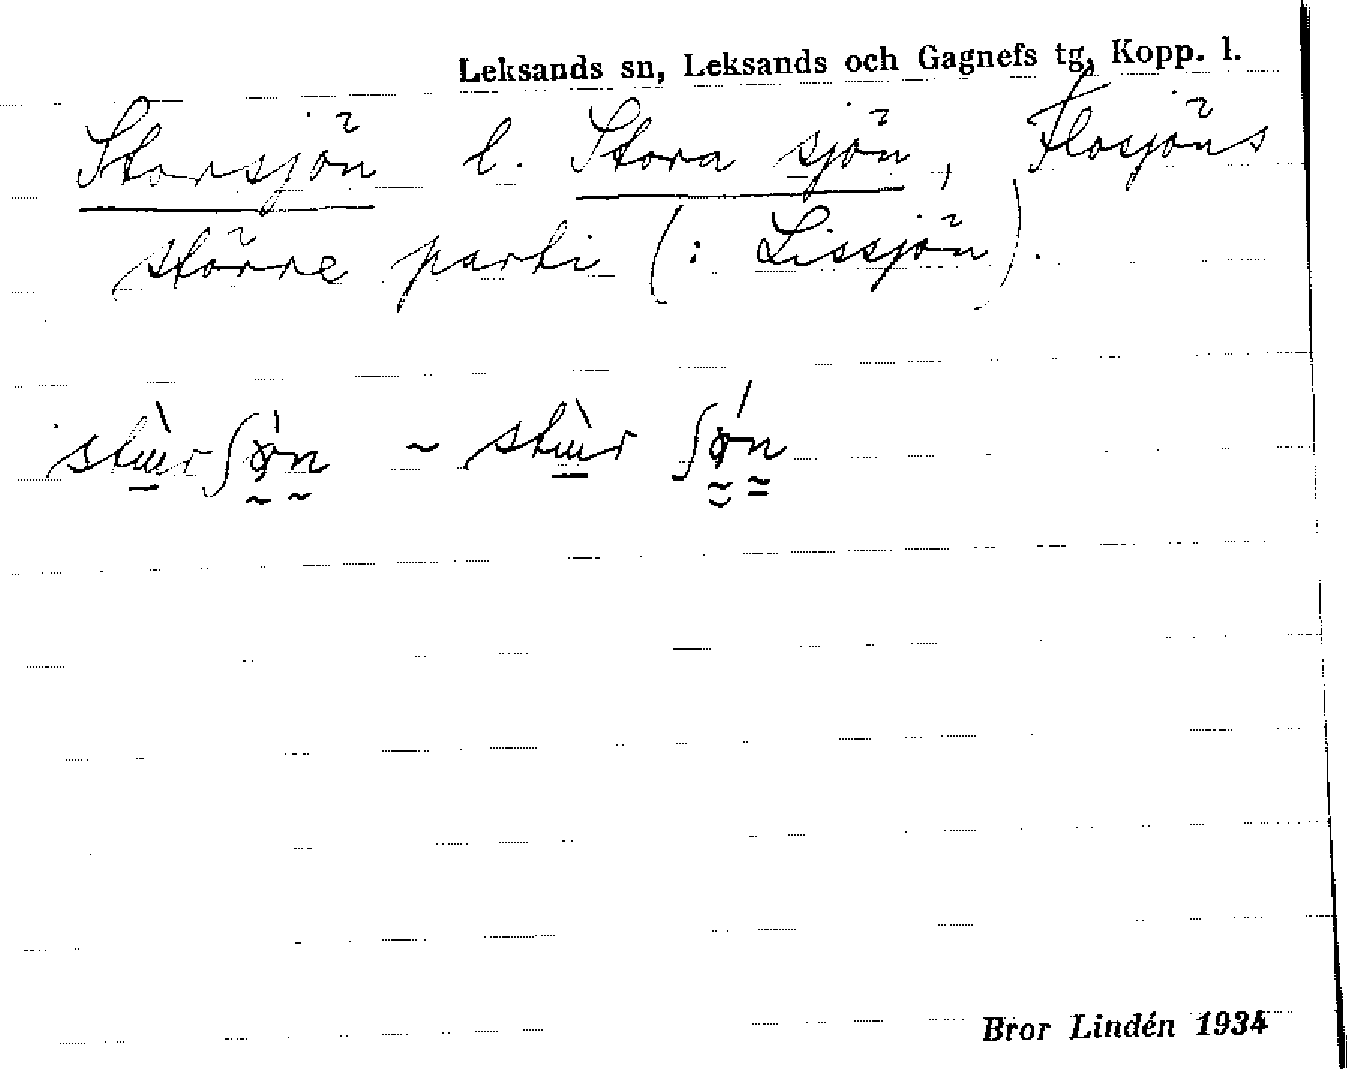 Leksands sn, Leksands och Gagnefs tg, Kopp. l.
Storsjön l. Stora sjön, Flosjöns
större parti (: Lissjön).
Bror Lindén 1934